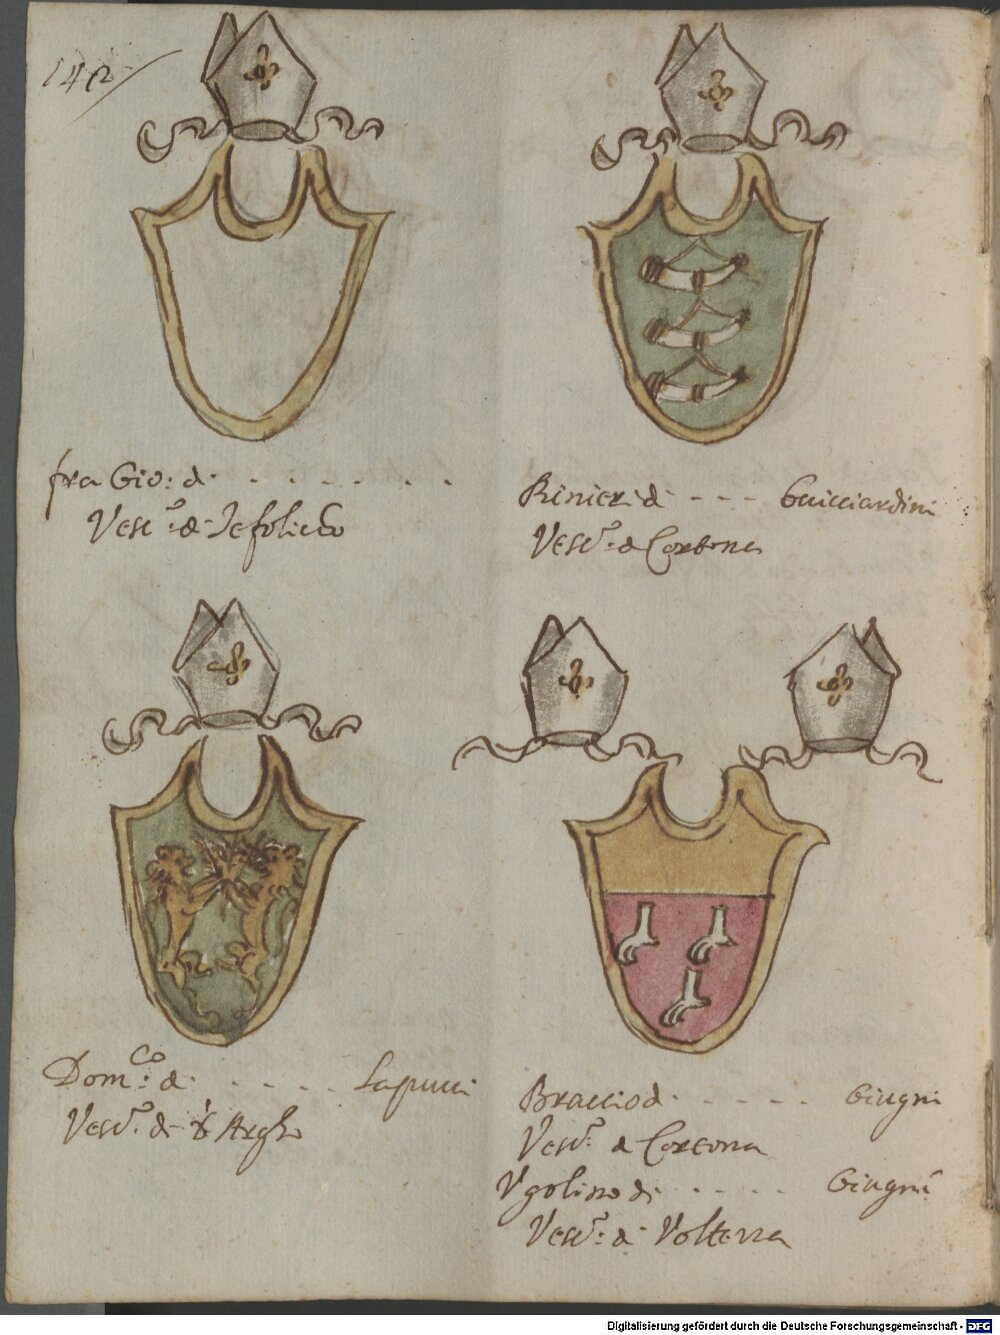 142
fra Gio: di . . . . . . .
Vesc.º di
Rinier di - - - Guicciardini
Vesc.º di Cortona
Dom.co di . . . . . Lapucci
Vesc.º di
Braccio di . . . . . Giugni
Vesc.º di Cortona
Vgolino di . . . . . Giugni
Vesc.º di Volterra
Digitalisierung gefördert durch die Deutsche Forschungsgemeinschaft - DFG